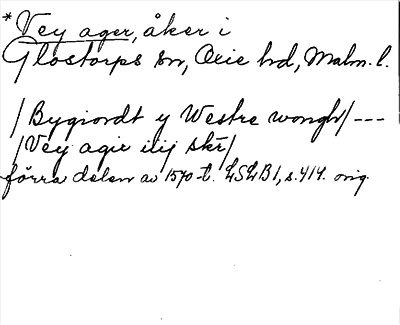 *Vey ager, åker i
Glostorps sn, Oxie hd, Malm. l.
/Bygiordt y Westre wongh/ ---
/Vey agie iiij skr/
förra delen av 1570-t. LSLB1, s. 414. orig.